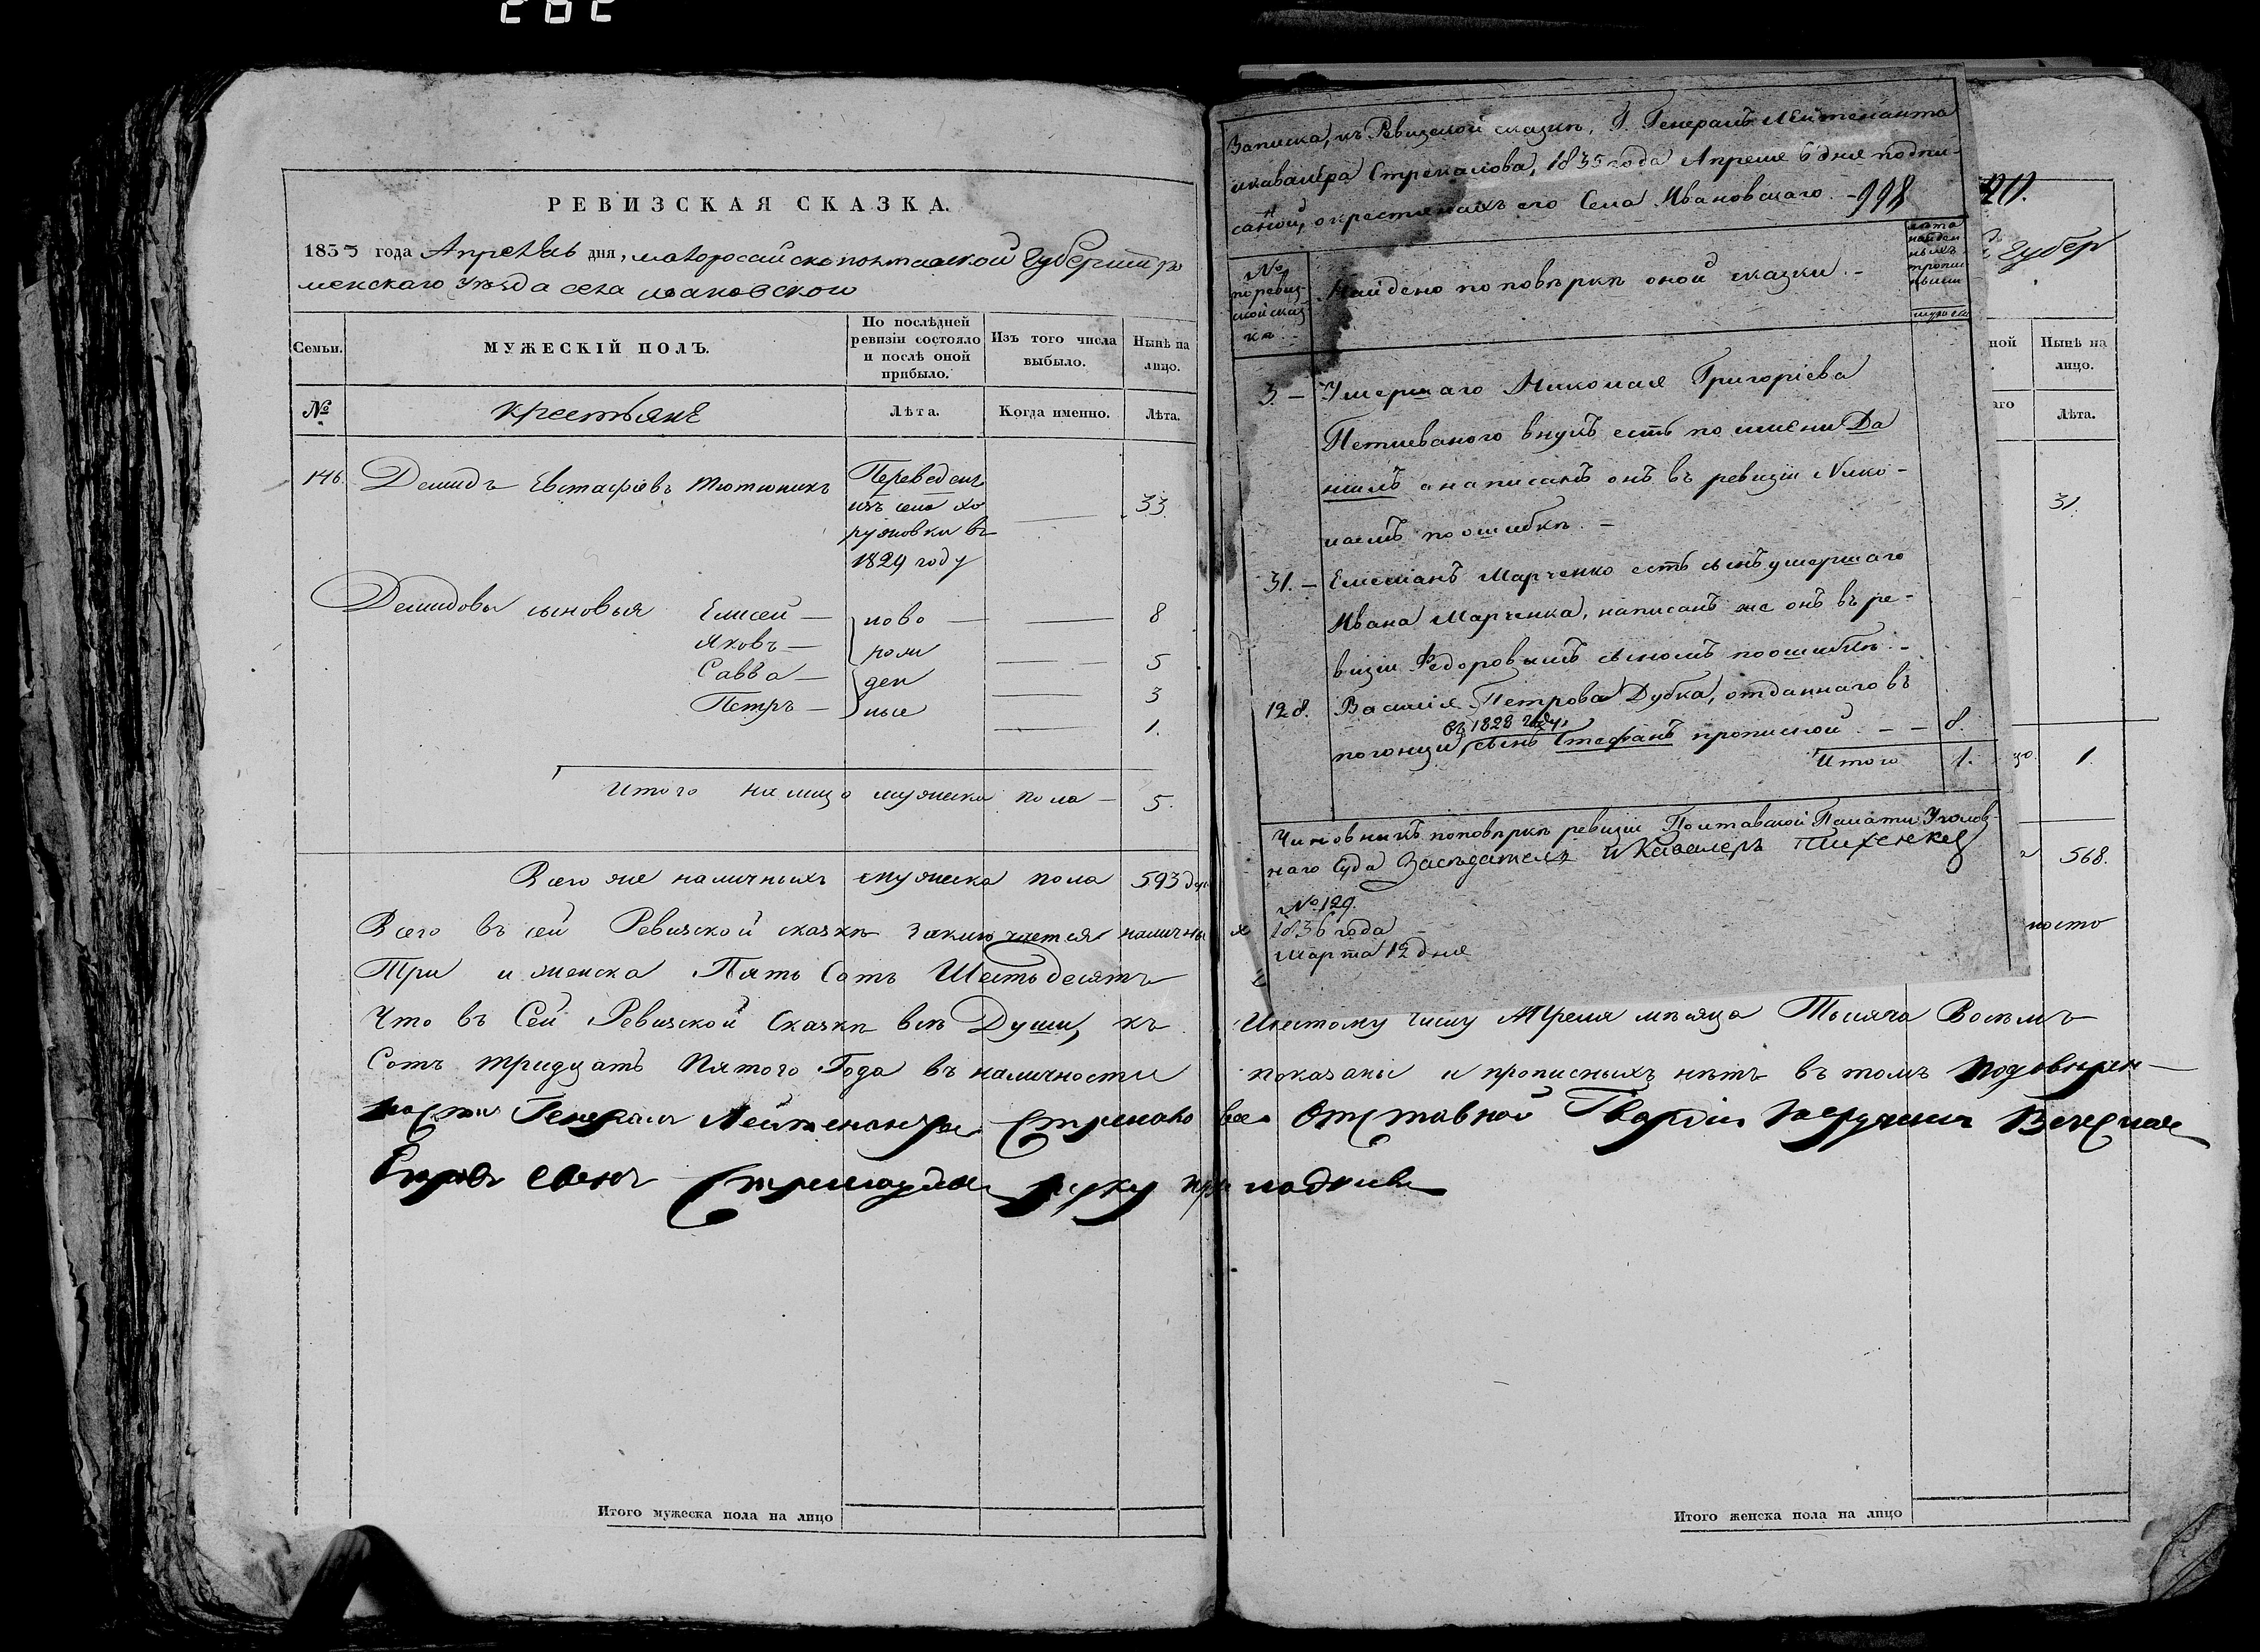 282
РЕВИЗСКАЯ СКАЗКА.
1835 года Апрель дня, малоросайско полтавской Губерши ро
менскаго уезда села ивановской
Семьи.
МУЖЕСКІЙ ПОЛЪ.
По послѣдней ревизіи состояло и послѣ оной прибыло.
Изъ того числа выбыло.
Нынѣ на лицо.
№
крестьяне
Лѣта.
Когда именно.
Лѣта.
146.
Демидъ Евстафіевъ Тютюникъ
Переведенъ
изъ села хо
ружовки въ
1829 году
33.
Демидовы сыновья Елисей — ново — 8
Яковъ — рож 5
Савва — ден 3
Петръ — ные 1.
Итого на лицо мужеска пола — 5.
Всего же наличныхъ мужеска пола 593 ду
Всего въ сей Ревизской сказкѣ заключается наличны
Три и женска Пять Сотъ Шестьдесятъ
Что въ Сей Ревизской Сказкѣ всѣ Души, къ
Сотъ тридцать Пятого Года въ наличности
Генералъ Лейтенанта Стрекало
сынъ руку
Итого мужеска пола на лицо
Записка, къ Ревизской сказкѣ, Г. Генералъ Лейтенанта
икавалера Стрекалова, 1835 года Апреля 6 дня подпи-
саной, окрестьянахъ его Села Ивановскаго. - 998
№ поревиз-
ской сказ
кѣ.
Найдено поповѣркѣ оной сказки. -
лѣта
найден
ныхъ
пропис
ными
3. — Умершаго Николая Григоріева
Петлеваного внукъ есть по имени Да
ниилъ анаписанъ онъ въ ревизіи Нико-
лаемъ поошибкѣ. -
31. — Емельянъ Марченко есть сынъ умершаго
Ивана Марченка, написанъ же онъ въ ре-
визіи Федоровымъ сыномъ поошибкѣ. -
128. Василія Петрова Дубка, отданнаго въ
въ 1828 году,
погонци, сынъ Стефанъ прописной. - - 8.
Итого 1.
Чиновникъ поповѣркѣ ревизіи Полтавской Палаты Уголов
наго Суда Засѣдатель и Кавалеръ
№ 129.
1836 года
Марта 12 дня
губер
ной
Нынѣ на лицо.
аго
Лѣта.
31.
1.
568.
носто
Шестому Числу Апреля мѣсяца Тысяча Восемъ
показаны и прописныхъ нѣтъ въ томъ
Отставной Гвардіи
Итого женска пола на лицо